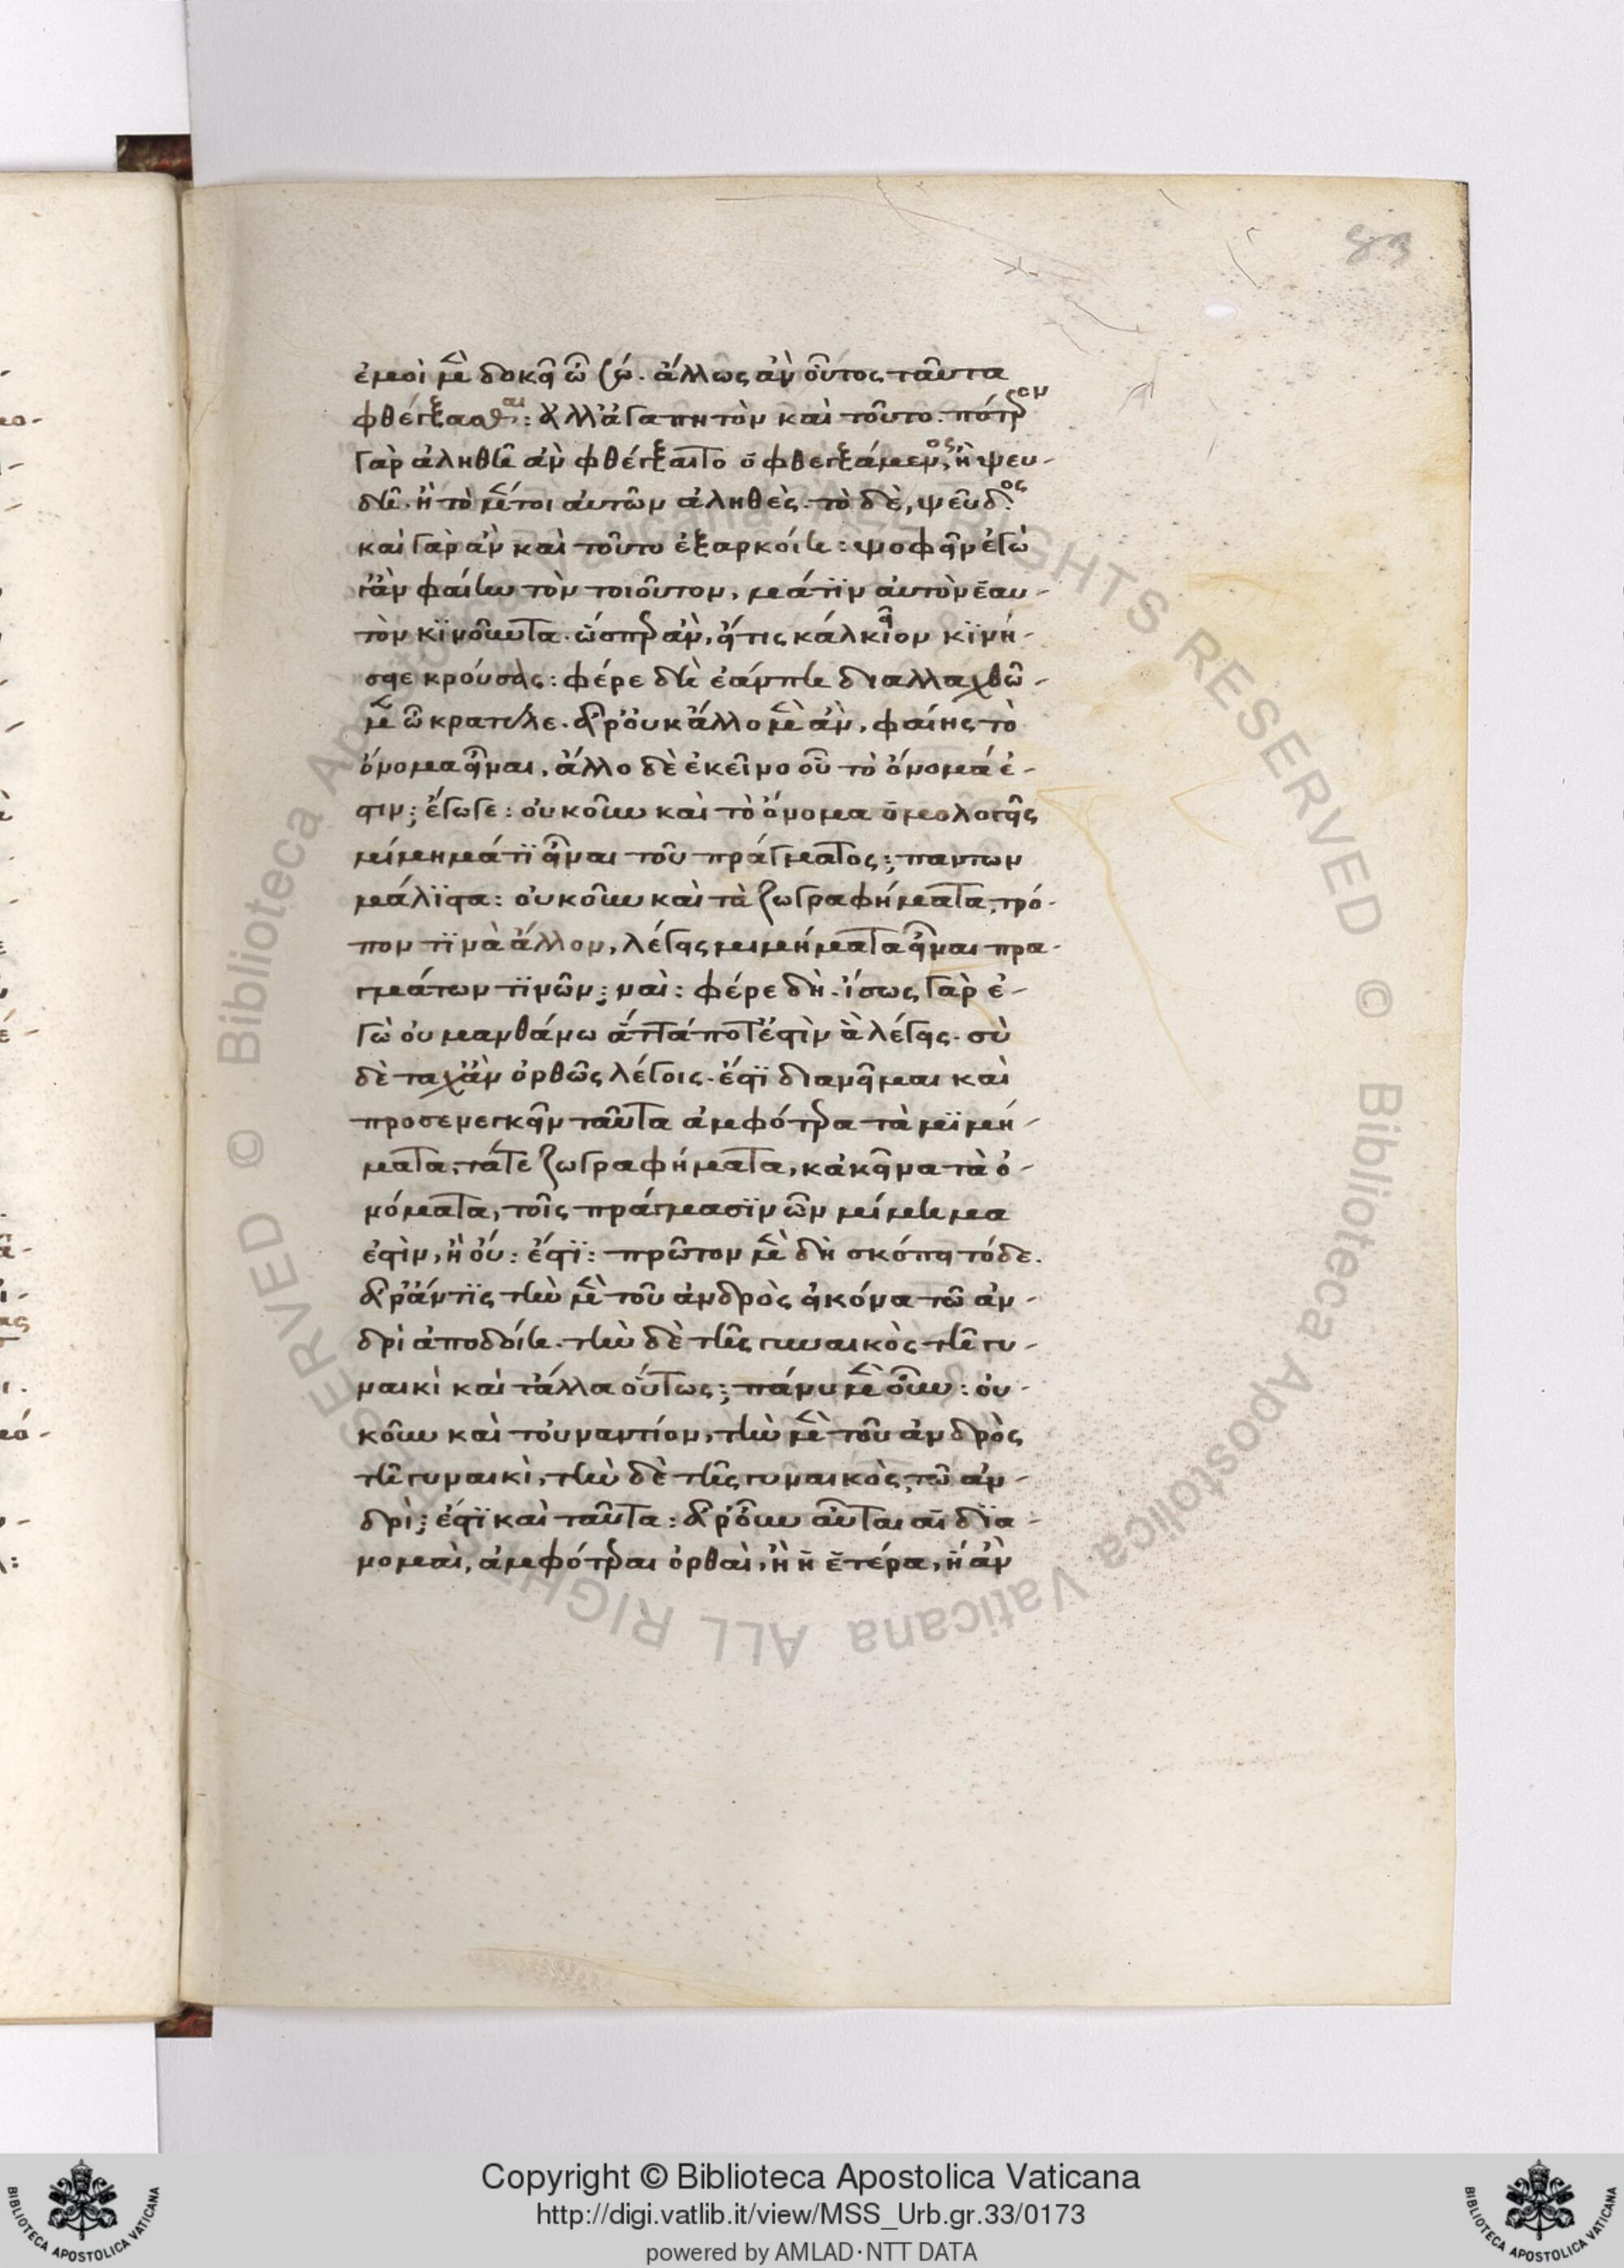 83
ἐμοὶ μὲν δοκεῖ ὦ σώ. ἄλλως ἂν οὗτος ταῦτα
φθέγξασθαι: ἀλλ' ἀγαπητὸν καὶ τοῦτο. πότερον
γὰρ ἀληθῆ ἂν φθέγξαιτο ὁ φθεγξάμενος, ἢ ψευ-
δῆ. ἢ τὸ μέν τοι αὐτῶν ἀληθὲς. τὸ δὲ, ψεῦδος.
καὶ γὰρ ἂν καὶ τοῦτο ἐξαρκοίη: ψοφεῖν ἐγὼ
γ' ἂν φαίην τὸν τοιοῦτον, μάτην αὐτὸν ἑαυ-
τὸν κϊνοῦντα. ὥσπερ ἂν, εἴ τις χαλκεῖον κϊνή-
σειε κρούσας: φέρε δὴ ἐάν πη διαλλαχθῶ-
μεν ὦ κρατύλε. ἆρ' οὐκ ἄλλο μὲν ἂν, φαίης τὸ
ὄνομα εἶναι, ἄλλο δὲ ἐκεῖνο οὗ τὸ ὄνομά ἐ-
στιν; ἔγωγε: οὐκοῦν καὶ τὸ ὄνομα ὁμολογεῖς
μίμημά τϊ εἶναι τοῦ πράγματος; πάντων
μάλϊστα: οὐκοῦν καὶ τὰ ζωγραφήματα, τρό-
πον τϊνὰ ἄλλον, λέγεις μιμήματα εἶναι πρα-
γμάτων τϊνῶν; ναὶ: φέρε δὴ. ἴσως γὰρ ἐ-
γὼ οὐ μανθάνω ἅττα ποτ' ἐστὶν ἃ λέγεις. σὺ
δὲ ταχ' ἂν ὀρθῶς λέγοις. ἔστϊ διανεῖμαι καὶ
προσενεγκεῖν ταῦτα ἀμφότερα τὰ μϊμή-
ματα, τά τε ζωγραφήματα, κἀκεῖνα τὰ ὀ-
νόματα, τοῖς πράγμασϊν ὧν μίμημα
ἐστὶν, ἢ οὔ: ἔστϊ: πρῶτον μὲν δὴ σκόπει τόδε.
ἆρ' ἄν τϊς τὴν μὲν τοῦ ἀνδρὸς εἰκόνα τῶ ἀν-
δρὶ ἀποδοίη. τὴν δὲ τῆς γυναικὸς τῆ γυ-
ναικὶ καὶ τἄλλα οὕτως; πάνυ μὲν οὖν: οὐ-
κοῦν καὶ τοὐναντίον, τὴν μὲν τοῦ ἀνδρὸς
τῆ γυναικὶ, τὴν δὲ τῆς γυναικὸς, τῶ ἀν-
δρὶ; ἔστϊ καὶ ταῦτα: ἆρ' οὖν αὗται αἱ δϊα-
νομαὶ, ἀμφότεραι ὀρθαὶ, ἢ ἡ ἑτέρα, ἣ ἂν
Copyright © Biblioteca Apostolica Vaticana
http://digi.vatlib.it/view/MSS_Urb.gr.33/0173
powered by AMLAD·NTT DATA